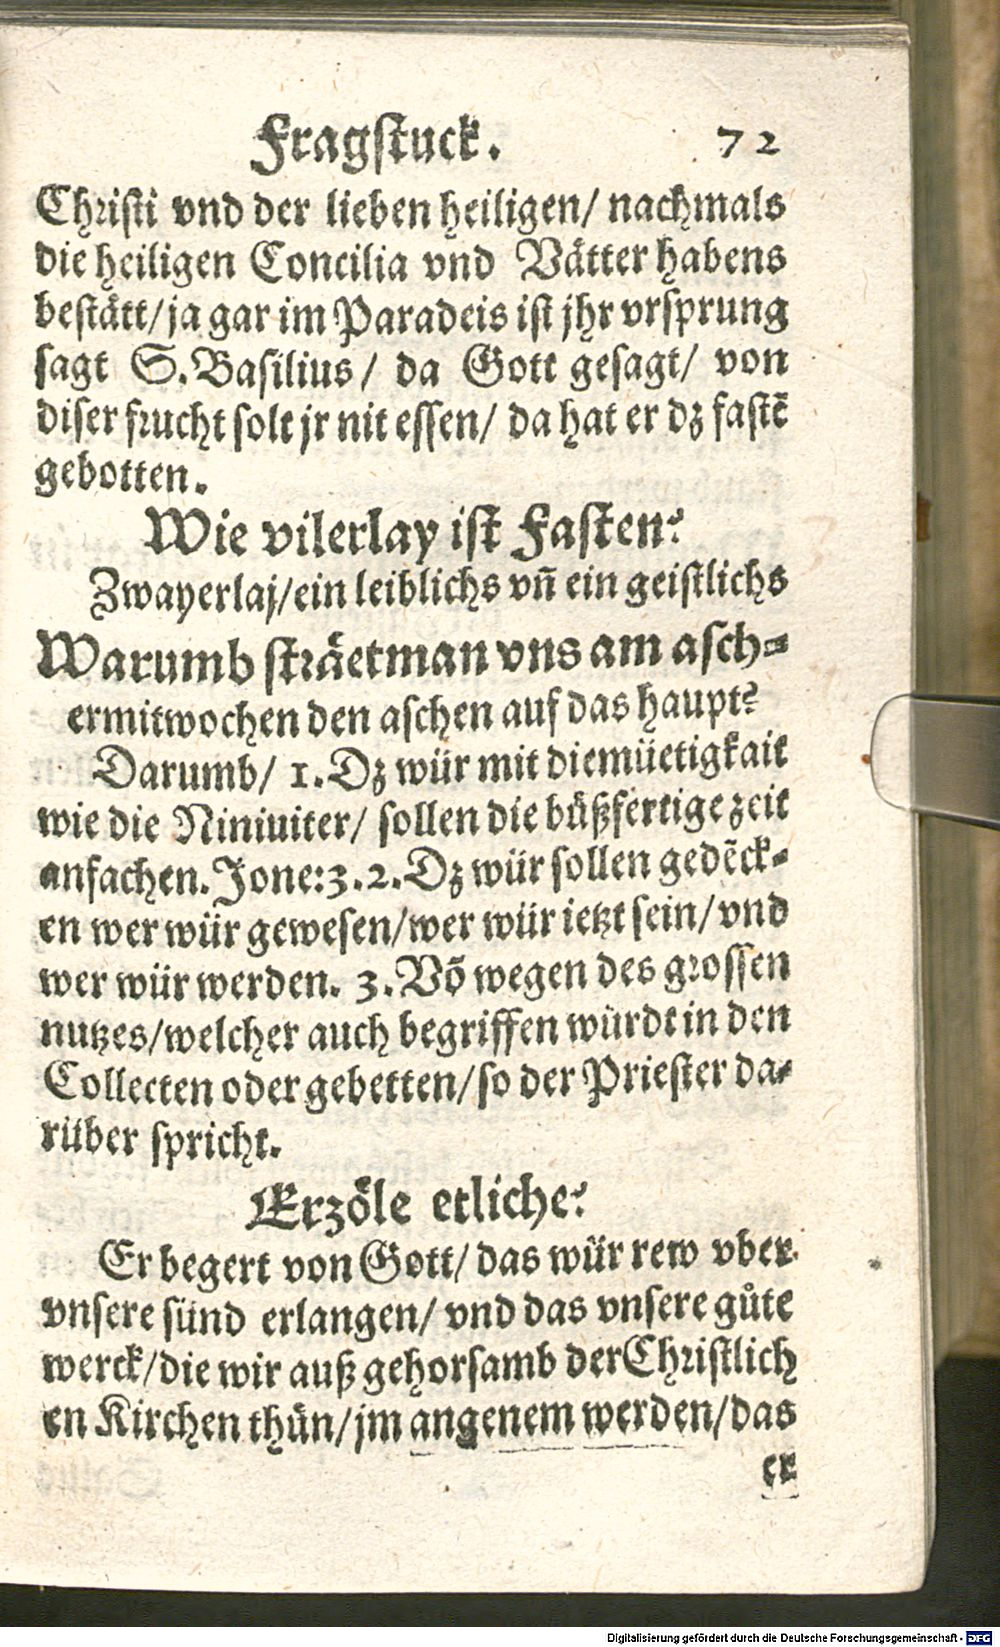 Fragstuck. 72
Christi vnd der lieben heiligen/ nachmals
die heiligen Concilia vnd Vätter habens
bestätt/ ja gar im Paradeis ist jhr vrsprung
sagt S. Basilius/ da Gott gesagt/ von
diser frucht solt jr nit essen/ da hat er dz fastē
gebotten.
Wie vilerlay ist Fasten?
Zwayerlaj/ein leiblichs vn̄ ein geistlichs
Warumb sträetman vns am asch⸗
ermitwochen den aschen auf das haupt?
Darumb/ 1. Dz wür mit diemüetigkait
wie die Niniuiter/ sollen die büßfertige zeit
anfachen. Jone: 3. 2. Dz wür sollen gedēck⸗
en wer wür gewesen/wer wür ietzt sein/vnd
wer wür werden. 3. Võ wegen des grossen
nutzes/welcher auch begriffen würdt in den
Collecten oder gebetten/so der Priester da⸗
rüber spricht.
Erzöle etliche?
Er begert von Gott/ das wür rew vber
vnsere sünd erlangen/ vnd das vnsere gůte
werck/die wir auß gehorsamb der Christlich
en Kirchen thün/jm angenem werden/das
er
Digitalisierung gefördert durch die Deutsche Forschungsgemeinschaft - DFG